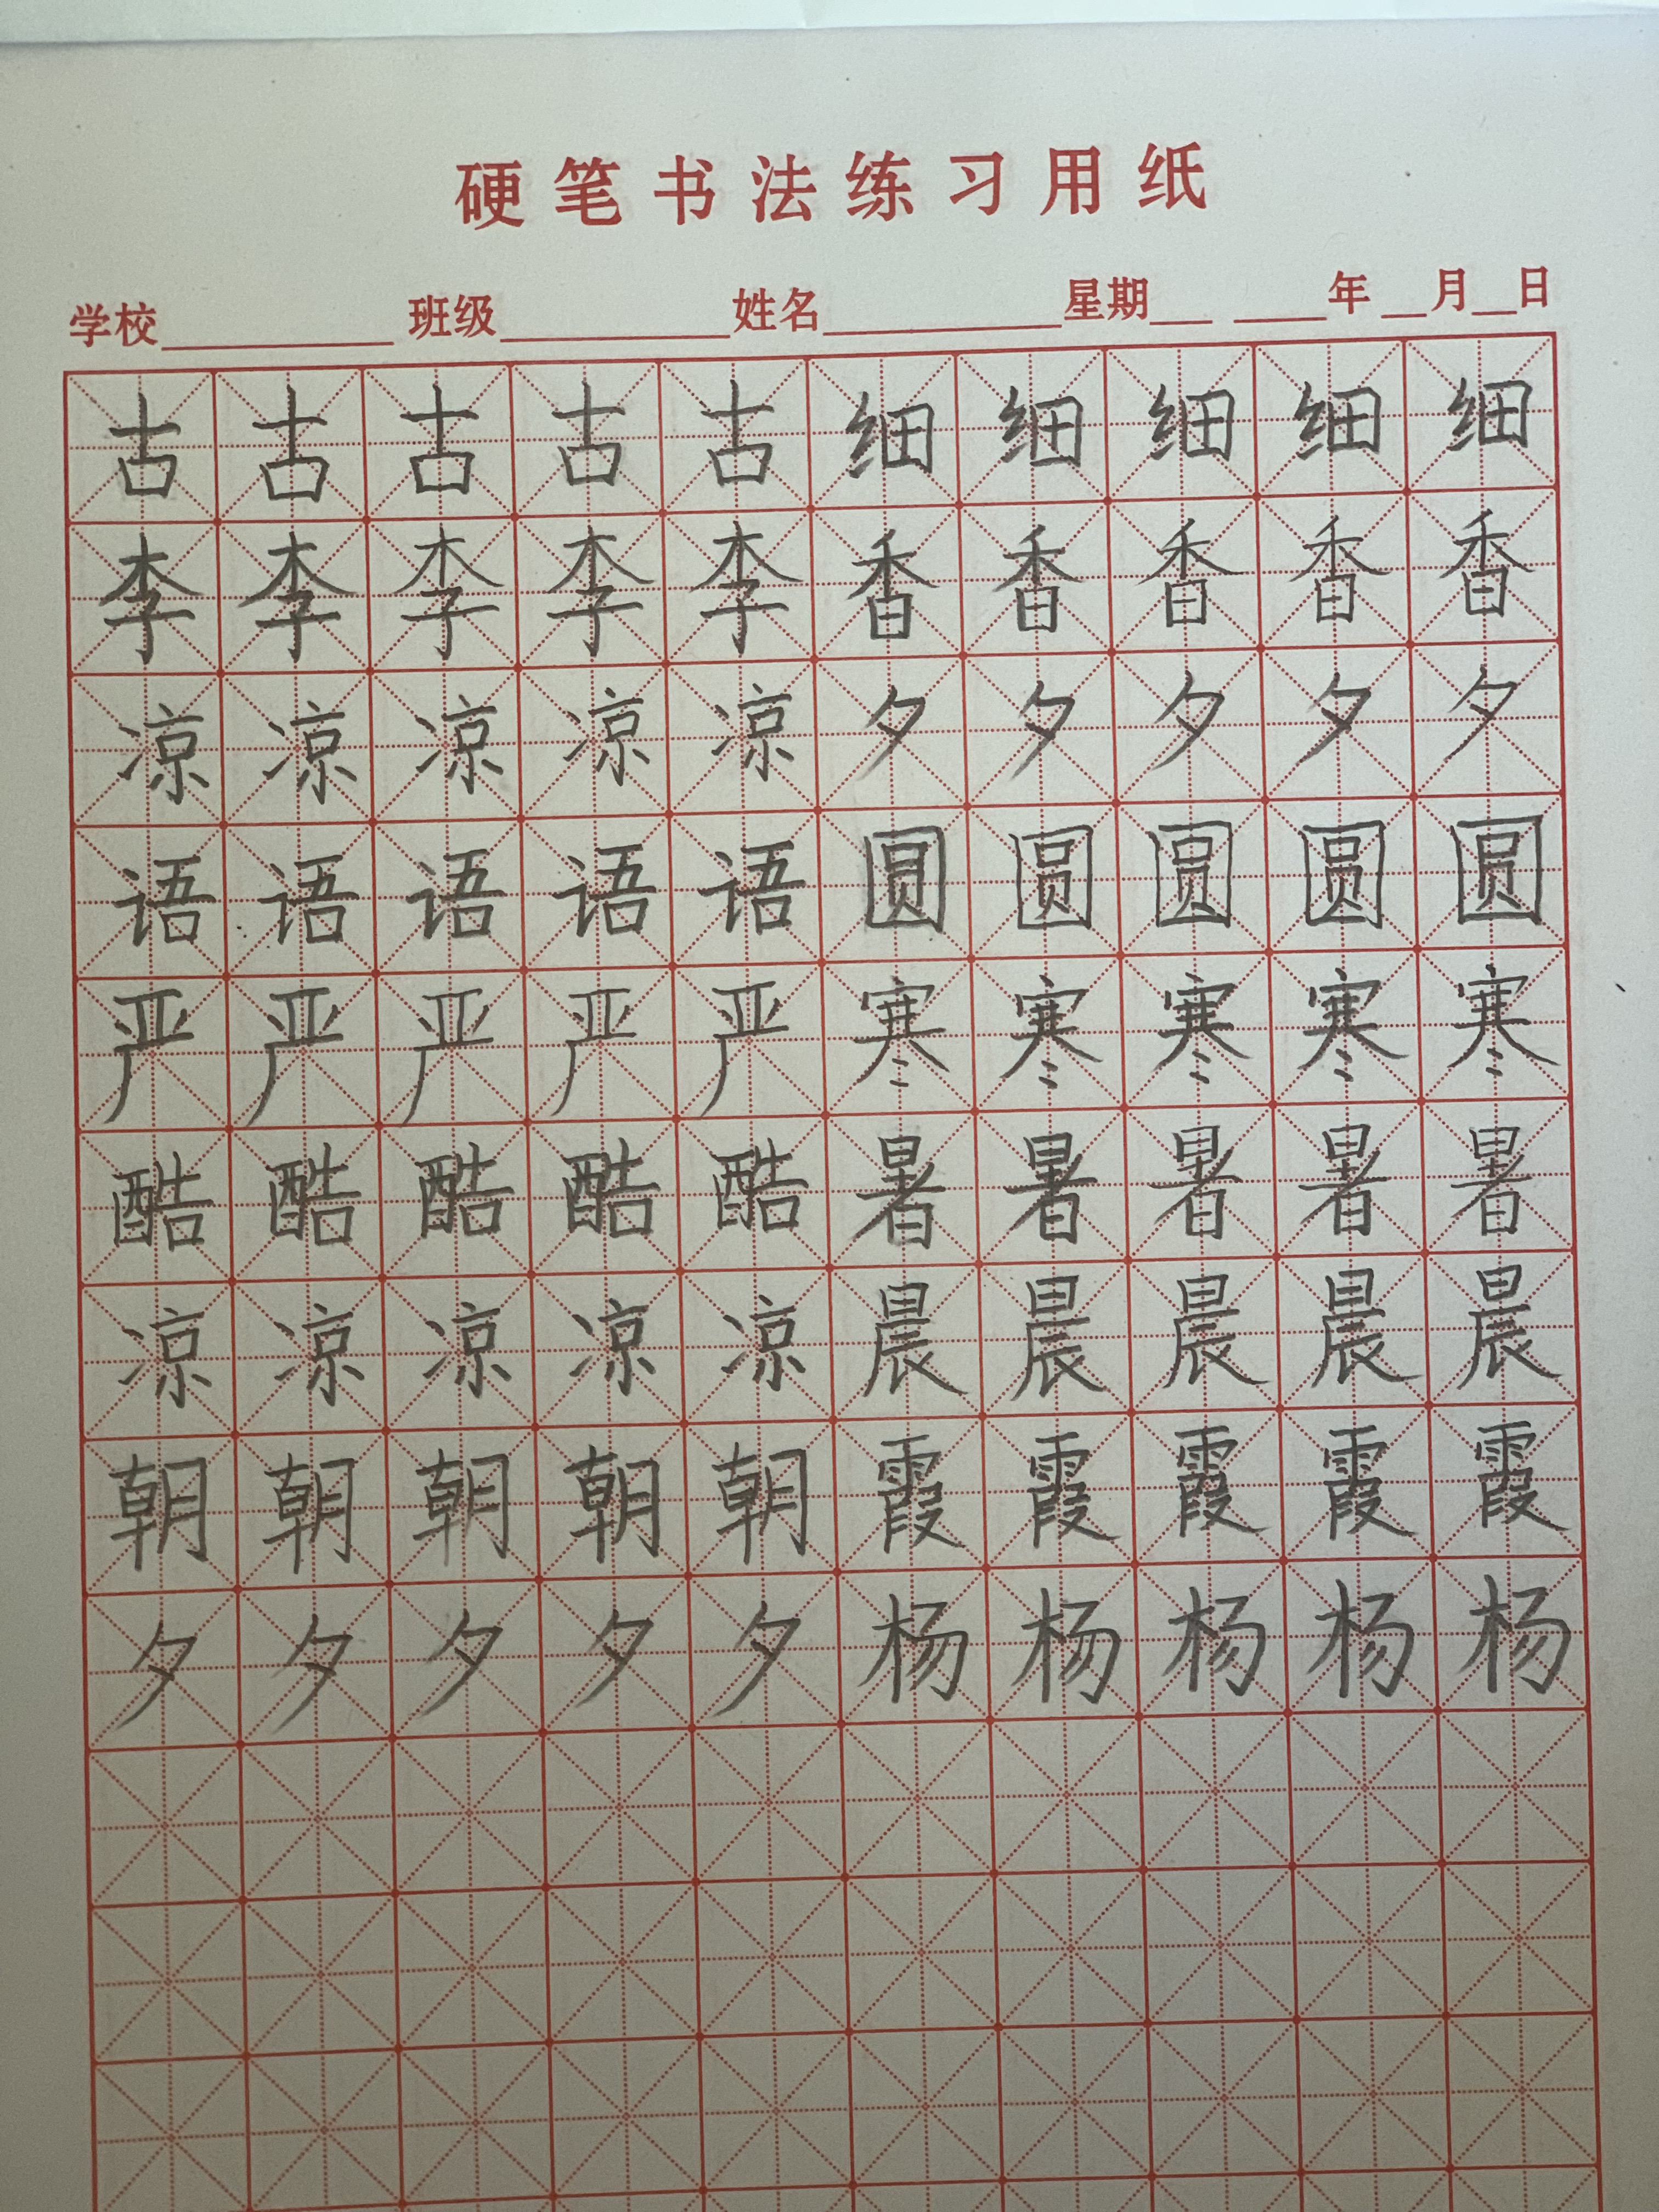 硬笔书法练习用纸
学校 班级 姓名 星期 年 月 日
古古古古古细细细细细
李李李李李香香香香香
凉凉凉凉凉夕夕夕夕夕
语语语语语圆圆圆圆圆
严严严严严寒寒寒寒寒
酷酷酷酷酷暑暑暑暑暑
凉凉凉凉凉晨晨晨晨晨
朝朝朝朝朝霞霞霞霞霞
夕夕夕夕夕杨杨杨杨杨